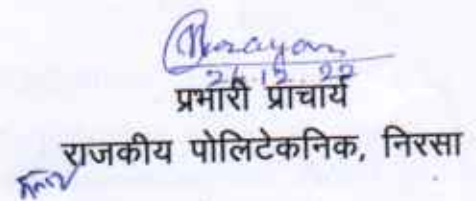 26.12.22
प्रभारी प्राचार्य
राजकीय पोलिटेकनिक, निरसा